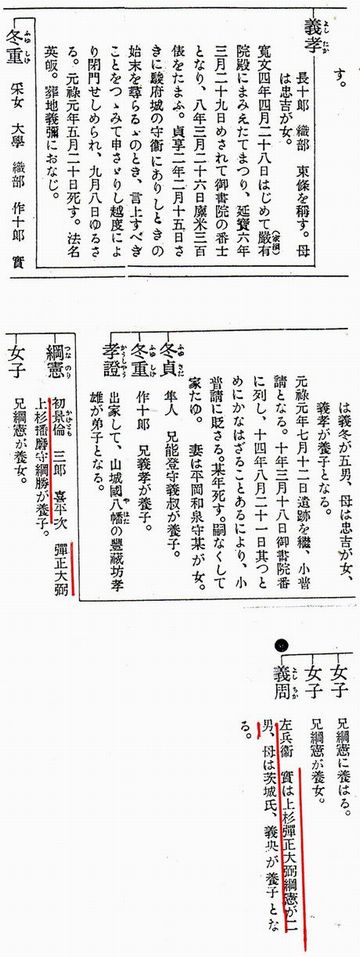 す。
義孝
よしたか
長十郎 織部 東條を稱す。母
は忠吉が女。
寛文四年四月二十八日はじめて嚴有
(家綱)
院殿にまみえたてまつり、延寶六年
三月二十九日めされて御書院の番士
となり、八年三月二十六日廩米三百
俵をたまふ。貞享二年二月十五日さ
きに駿府城の守衞にありしときの
始末を尋らるゝのとき、言上すべき
ことをつゝみて申さゞりし越度によ
り閉門せしめられ、九月八日ゆるさ
る。元祿元年五月二十日死す。法名
英皈。葬地義彌におなじ。
冬重
ふゆしげ
采女 大學 織部 作十郎 實
は義冬が五男、母は忠吉が女、
義孝が養子となる。
元祿元年七月十二日遺跡を繼、小普
請となる。十年三月十八日御書院番
に列し、十四年八月二十一日其つと
めにかなはざることあるにより、小
普請に貶さる。某年死す。嗣なくして
家たゆ。 妻は平岡和泉守某が女。
冬貞
ふゆさだ
隼人 兄能登守義叔が養子。
冬重
ふゆしげ
作十郎 兄義孝が養子。
孝證
かうしやう
出家して、山城國八幡の豐藏坊孝
やはた
雄が弟子となる。
綱憲
つなのり
初景倫 三郎 喜平次 彈正大弼
かげとも
上杉播磨守綱勝が養子。
女子
兄綱憲が養女。
女子
兄綱憲に養はる。
女子
兄綱憲が養女。
義周
よしちか
左兵衞 實は上杉彈正大弼綱憲が二
男、母は茨城氏、義央が養子とな
る。